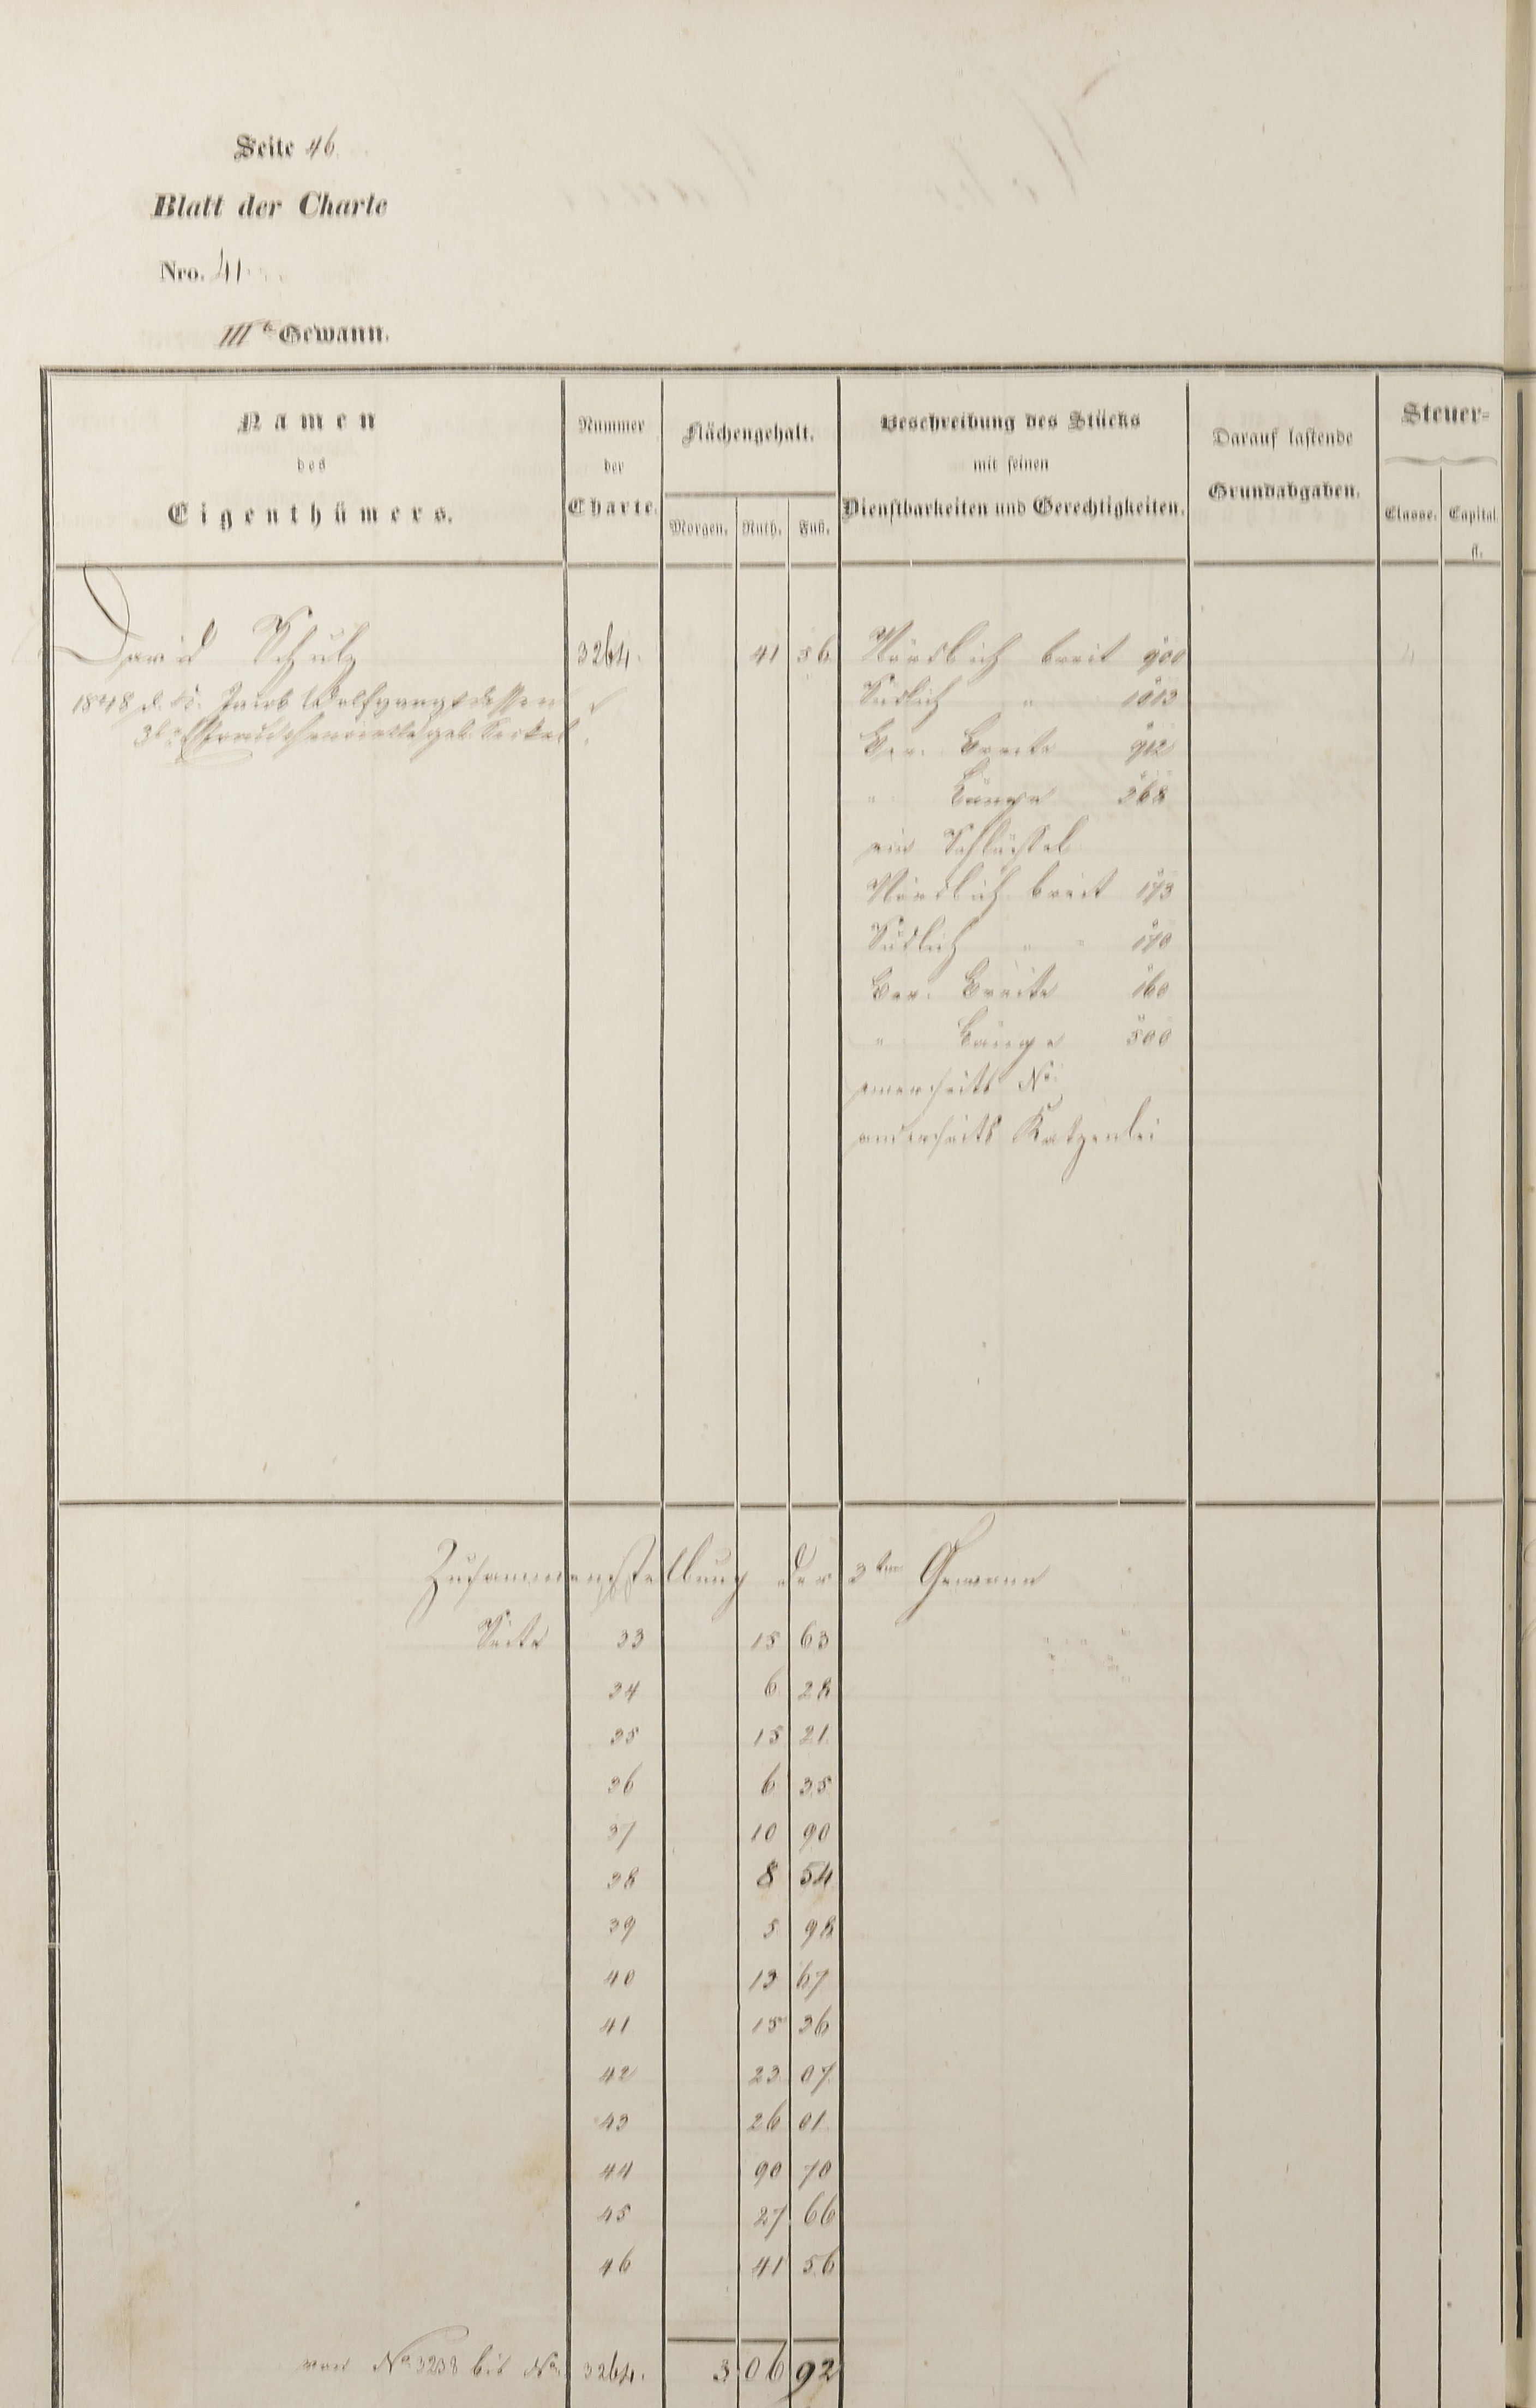 Seite 46
Blatt der Charte
Nro. 41
III te Gewann.
Namen des Eigenthümers.
Nummer der Charte.
Flächengehalt.
Morgen. Ruth. Fuß.
Beschreibung des Stücks
mit seinen
Dienstbarkeiten und Gerechtigkeiten.
Darauf lastende
Grundabgaben.
Steuer-
Classe. Capital.
fl.
David Schulz 3264. 41 56 Nördlich breit 900
1848 Jacob Wolfgang dessen
Südlich " 1013
Ger. Breite 912
" Länge 368
ein Schlüssel
Nördlich breit 173
Südlich " " 170
Ger. Breite 160
" Länge 500
einerseits No.
anderseits Katzenlei
Zusammenstellung der 3ten Gewann
Seite 33 15 63
34 6 28
35 15 21
36 6 35
37 10 90
38 8 54
39 5 98
40 13 67
41 15 36
42 23 07
43 26 01
44 90 70
45 27 66
46 41 56
von No 3238 bis No. 3264. 3 06 92